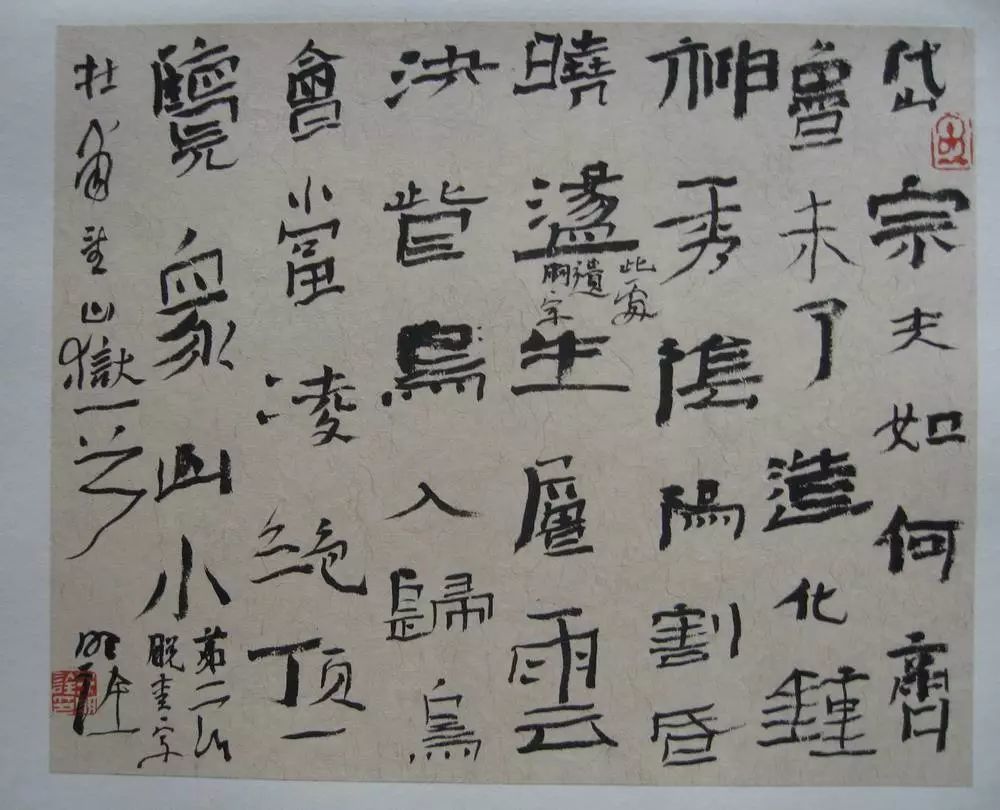 岱宗夫如何齊
魯未了造化鍾
神秀陰陽割昏
曉盪生層雲
此處遺胸字
決眥鳥入歸鳥
會當凌絕頂一
覽眾山小
第二行脫青字
杜甫望山嶽一之